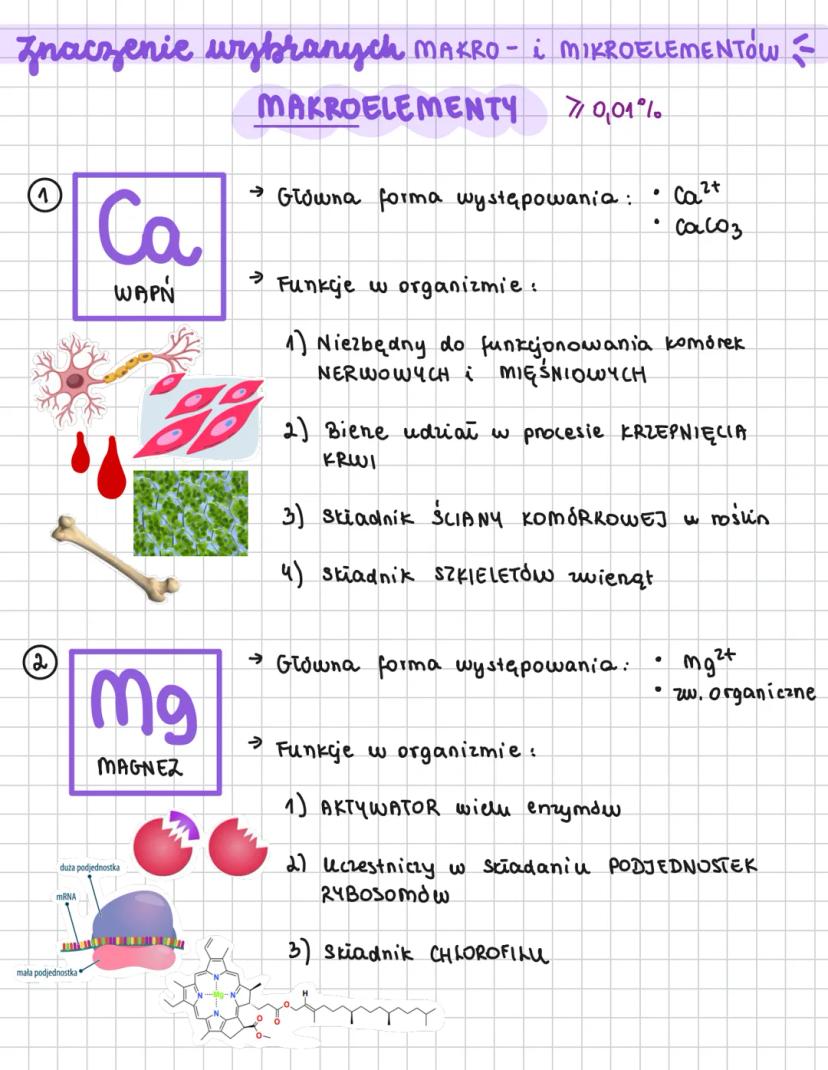 Znaczenie wybranych MAKRO- i MIKROELEMENTÓW
MAKROELEMENTY ⩾ 0,01%
1
Ca
WAPŃ
→ Główna forma występowania: • Ca²⁺
• CaCO₃
→ Funkcje w organizmie:
1) Niezbędny do funkcjonowania komórek
NERWOWYCH i MIĘŚNIOWYCH
2) Bierze udział w procesie KRZEPNIĘCIA
KRWI
3) Składnik ŚCIANY KOMÓRKOWEJ u roślin
4) Składnik SZKIELETÓW zwierząt
2
Mg
MAGNEZ
→ Główna forma występowania: • Mg²⁺
• zw. organiczne
→ Funkcje w organizmie:
1) AKTYWATOR wielu enzymów
2) Uczestniczy w składaniu PODJEDNOSTEK
RYBOSOMÓW
3) Składnik CHLOROFILU
duża podjednostka
mRNA
mała podjednostka
N
N Mg N
N
H
O
O
O
O